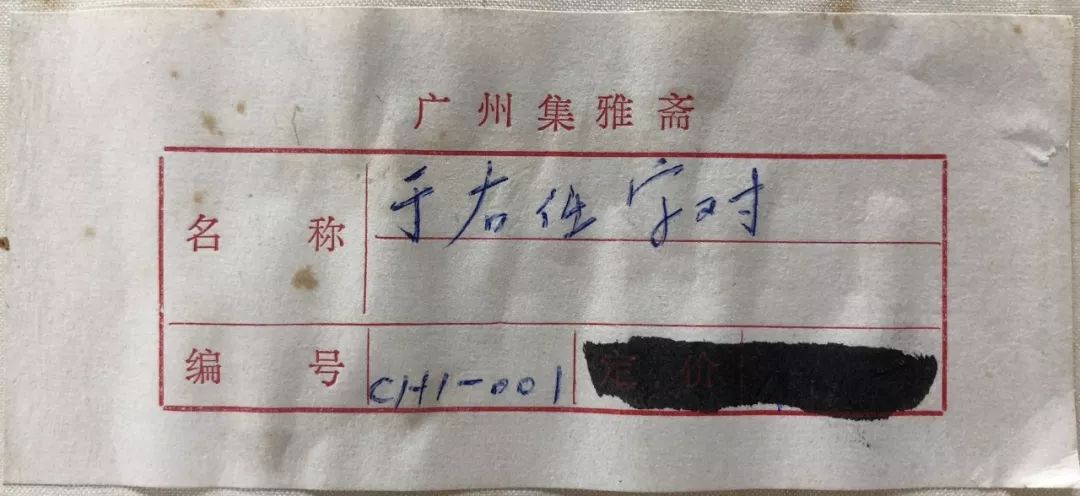 广州集雅斋
名称 于右任字对
编号 CH1-001 定价